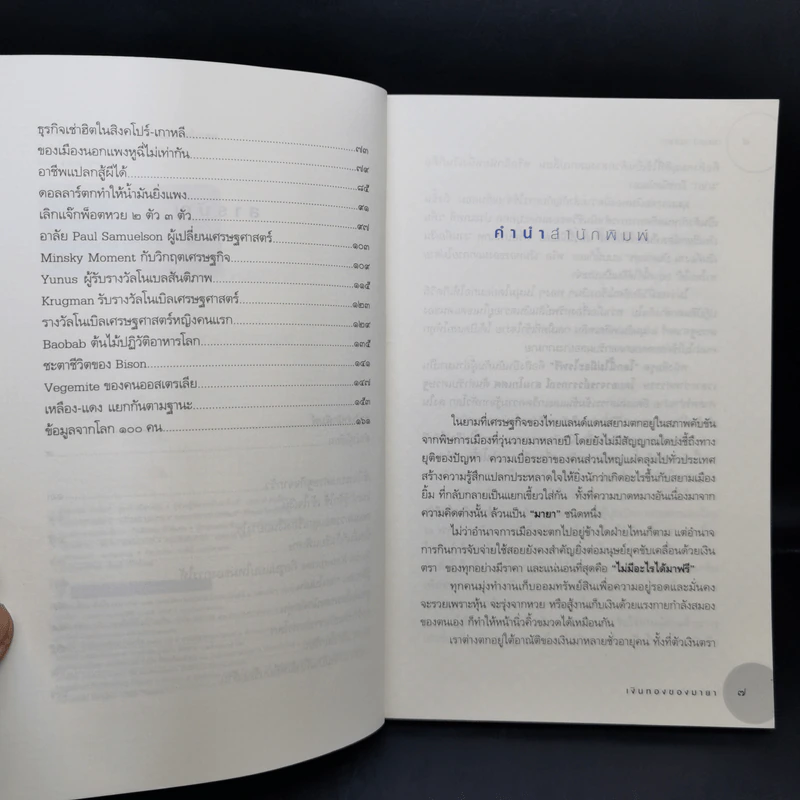 ธุรกิจเช่าฮิตในสิงคโปร์-เกาหลี ๗๓
ของเมืองนอกแพงหูฉี่ไม่เท่ากัน ๗๙
อาชีพแปลกสู้ผีได้ ๘๕
ดอลลาร์ตกทำให้น้ำมันยิ่งแพง ๙๑
เลิกแจ๊กพ็อตหวย ๒ ตัว ๓ ตัว ๙๗
อาลัย Paul Samuelson ผู้เปลี่ยนเศรษฐศาสตร์ ๑๐๓
Minsky Moment กับวิกฤตเศรษฐกิจ ๑๐๙
Yunus ผู้รับรางวัลโนเบลสันติภาพ ๑๑๕
Krugman รับรางวัลโนเบิลเศรษฐศาสตร์ ๑๒๓
รางวัลโนเบิลเศรษฐศาสตร์หญิงคนแรก ๑๒๙
Baobab ต้นไม้ปฏิวัติอาหารโลก ๑๓๕
ชะตาชีวิตของ Bison ๑๔๑
Vegemite ของคนออสเตรเลีย ๑๔๗
เหลือง-แดง แยกกันตามฐานะ ๑๕๓
ข้อมูลจากโลก ๑๐๐ คน ๑๖๑
คำนำสำนักพิมพ์
ในยามที่เศรษฐกิจของไทยแลนด์แดนสยามตกอยู่ในสภาพคับขัน
จากพิษการเมืองที่วุ่นวายมาหลายปี โดยยังไม่มีสัญญาณใดบ่งชี้ถึงทาง
ยุติของปัญหา ความเบื่อระอาของคนส่วนใหญ่แผ่คลุมไปทั่วประเทศ
สร้างความรู้สึกแปลกประหลาดใจให้ยิ่งนักว่าเกิดอะไรขึ้นกับสยามเมือง
ยิ้ม ที่กลับกลายเป็นแยกเขี้ยวใส่กัน ทั้งที่ความบาดหมางอันเนื่องมาจาก
ความคิดต่างนั้น ล้วนเป็น "มายา" ชนิดหนึ่ง
ไม่ว่าอำนาจการเมืองจะตกไปอยู่ข้างใดฝ่ายไหนก็ตาม แต่อำนาจ
การกินการจับจ่ายใช้สอยยังคงสำคัญยิ่งต่อมนุษย์ยุคขับเคลื่อนด้วยเงิน
ตรา ของทุกอย่างมีราคา และแน่นอนที่สุดคือ "ไม่มีอะไรได้มาฟรี"
ทุกคนมุ่งทำงานเก็บออมทรัพย์สินเพื่อความอยู่รอดและมั่นคง
จะรวยเพราะหุ้น จะรุ่งจากหวย หรือสู้งานเก็บเงินด้วยแรงกายกำลังสมอง
ของตนเอง ก็ทำให้หน้านิ่วคิ้วขมวดได้เหมือนกัน
เราต่างตกอยู่ใต้อาณัติของเงินมาหลายชั่วอายุคน ทั้งที่ตัวเงินตรา
เงินทองของมายา ๗